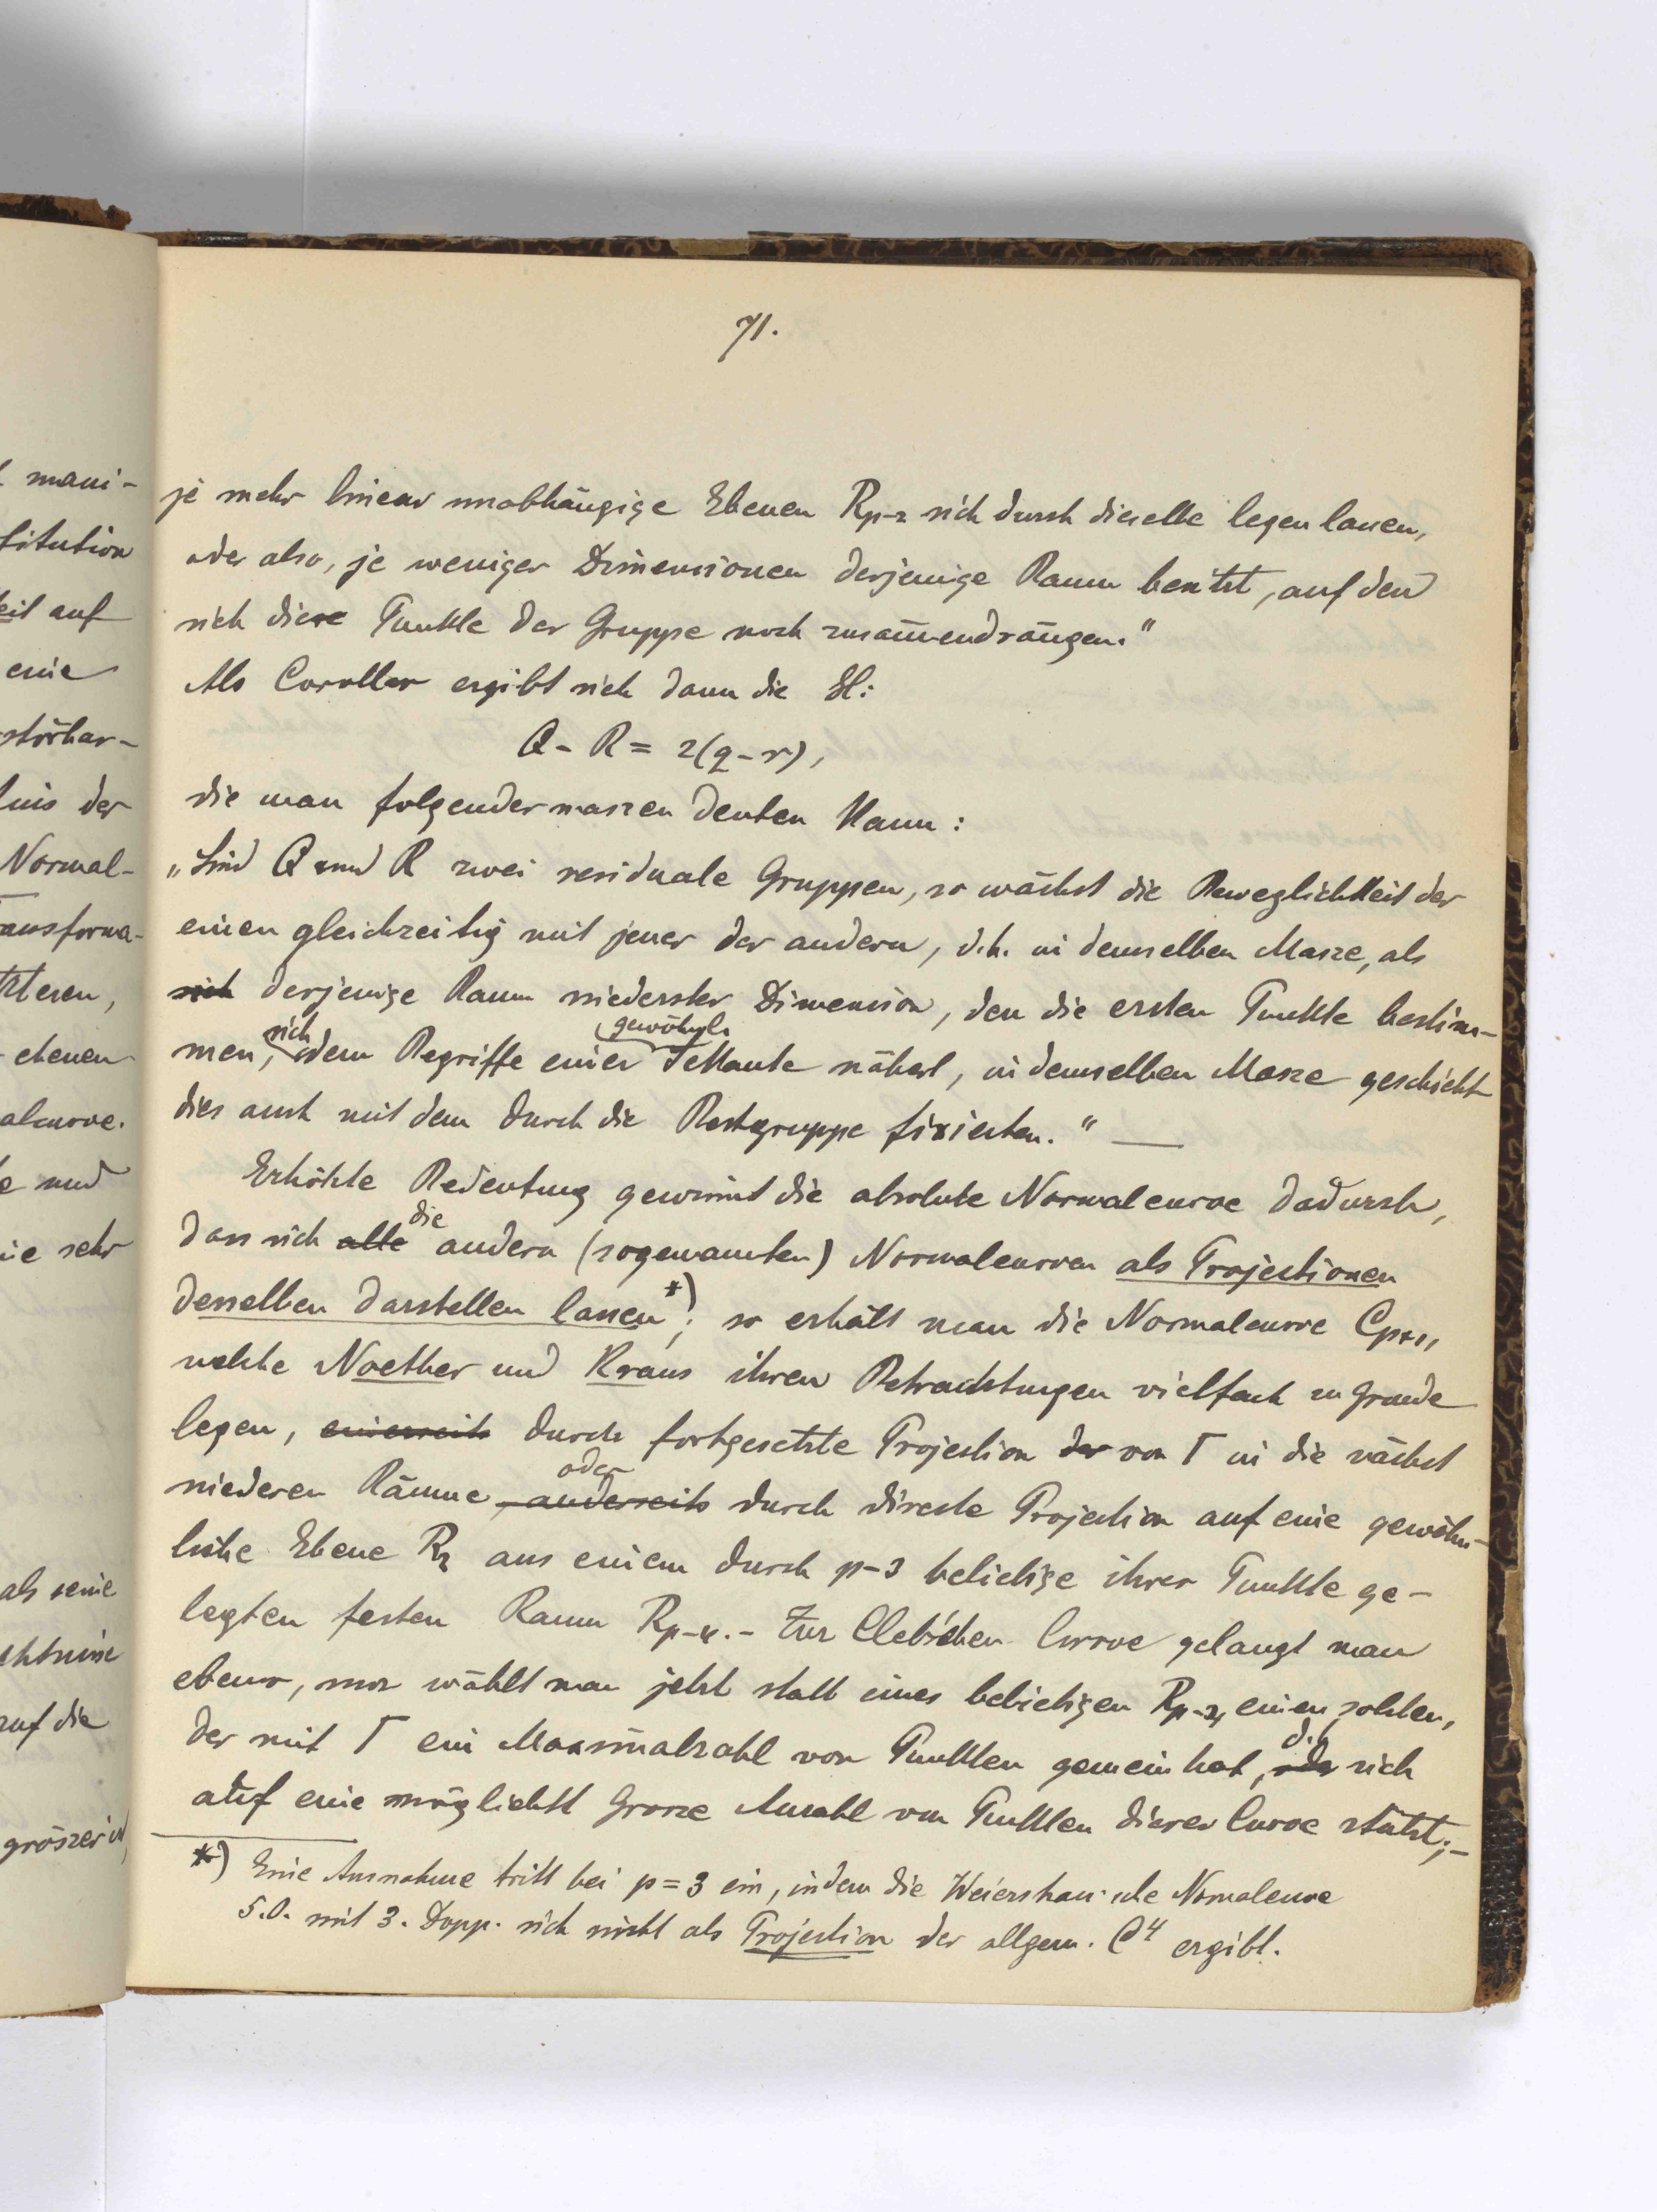 71.
je mehr linear unabhängige Ebenen Rp-2 sich durch dieselbe legen lassen,
oder also, je weniger Dimensionen derjenige Raum besitzt, auf den
sich diese Punkte der Gruppe noch zusam̄endrängen."
Als Corollar ergibt sich dann die Gl:
Q - R = 2(q-r),
die man folgendermaszen deuten kann:
„Sind Q und R zwei residuale Gruppen, so wächst die Beweglichkeit der
einen gleichzeitig mit jener der andern, d.h. in demselben Masze, als
sich derjenige Raum niederster Dimension, den die ersten Punkte bestim-
men, sich dem Begriffe einer gewöhnl. Sekante nähert, in demselben Masze geschieht
dies auch mit dem durch die Restgruppe fixierten." —
Erhöhte Bedeutung gewinnt die absolute Normalcurve dadurch,
dass sich alle die andern (sogenannten) Normalcurven als Projectionen
desselben darstellen lassen*); so erhält man die Normalcurve Cp+1,
welche Noether und Kraus ihren Betrachtungen vielfach zu Grunde
legen, einerseits durch fortgesetzte Projection der von Γ in die nächst
niederen Räume, anderseits oder durch directe Projection auf eine gewöhn-
liche Ebene R2 aus einem durch p-3 beliebige ihrer Punkte ge-
legten festen Raum Rp-4.- Zur Clebsch'schen Curve gelangt man
ebenso, nur wählt man jetzt statt eines beliebigen Rp-4, einen solchen,
der mit Γ ein Maximalzahl von Punkten gemein hat, oder d.h. sich
auf eine möglichst grosze Anzahl von Punkten dieser Curve stützt;-
*) Eine Ausnahme tritt bei p=3 ein, indem die Weierstrass'sche Normalcurve
5.O. mit 3. Dopp. sich nicht als Projection der allgem. C4 ergibt.
mani-
stitution
eit auf
eine
störbar-
nis der
Normal-
ansforma-
tzteren,
ebenen
alcurve.
e und
ie sehr
als seine
auf die
gröszer ist,